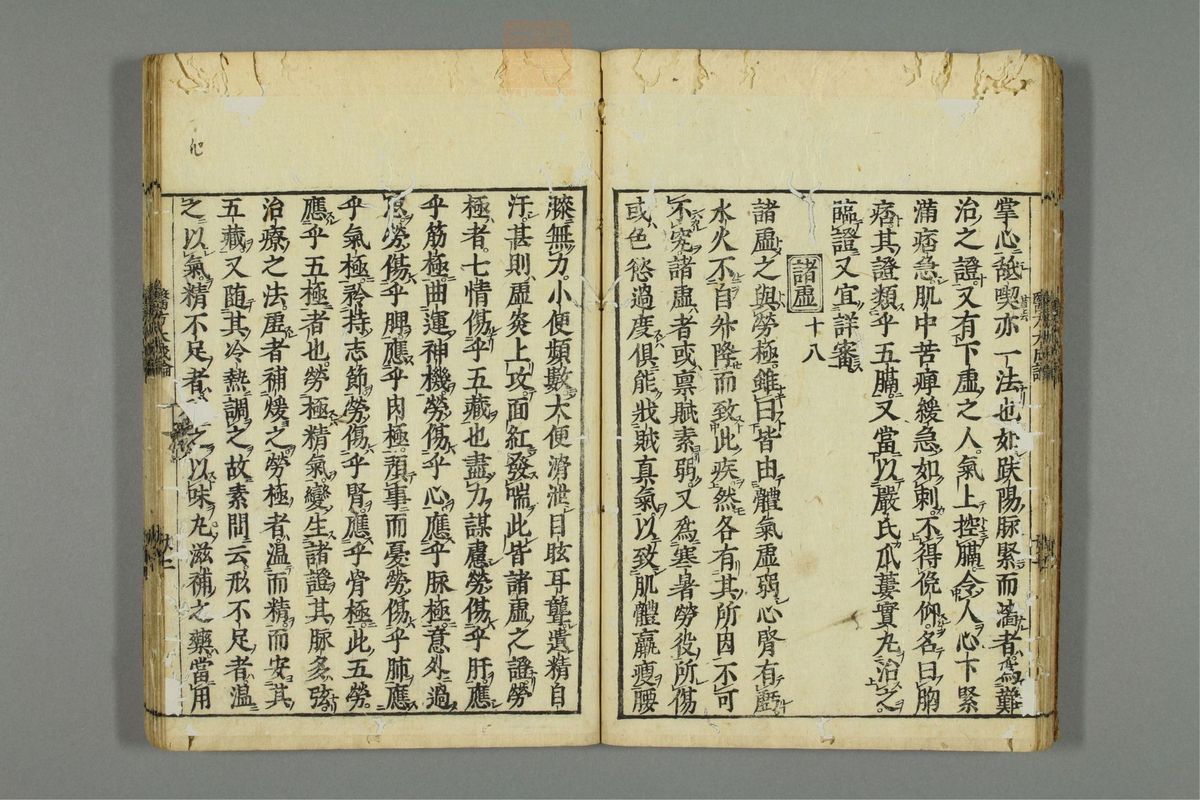 掌心䑛喫亦一法也如趺陽脉緊而濇者爲難
治之證又有下虛之人氣上控膈令人心下緊
滿痞急肌中苦痺緩急如刺不得俛仰名曰胸
痞其證類乎五膈又當以嚴氏瓜蔞實丸治之
臨證又宜詳審
諸虛 十八
諸虛之與勞極雖曰皆由體氣虛弱心腎有虧
水火不自升降而致此疾然各有其所因不可
不究諸虛者或禀賦素弱又爲寒暑勞役所傷
或色慾過度俱能戕賊真氣以致肌體羸瘦腰
膝無力小便頻數大便滑泄目眩耳聾遺精自
汗甚則虛炎上攻面紅發喘此皆諸虛之證勞
極者七情傷乎五藏也盡力謀慮勞傷乎肝應
乎筋極曲運神機勞傷乎心應乎脉極意外過
思勞傷乎脾應乎肉極預事而憂勞傷乎肺應
乎氣極矜持志節勞傷乎腎應乎骨極此五勞
應乎五極者也勞極精氣變生諸證其脉多弦
治療之法虛者補煖之勞極者溫而精而安其
五藏又随其冷熱調之故素問云形不足者溫
之以氣精不足者 之以味丸滋補之藥當用